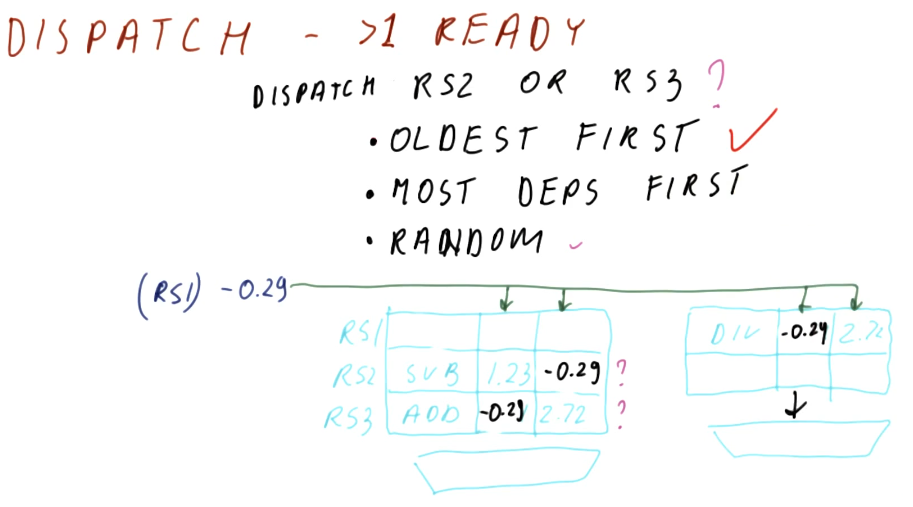 DISPATCH - >1 READY
DISPATCH RS2 OR RS3 ?
• OLDEST FIRST ✓
• MOST DEPS FIRST
• RANDOM ✓
(RS1) -0.29
RS1
DIV -0.29 2.72
RS2 SUB 1.23 -0.29 ?
RS3 ADD -0.29 2.72 ?